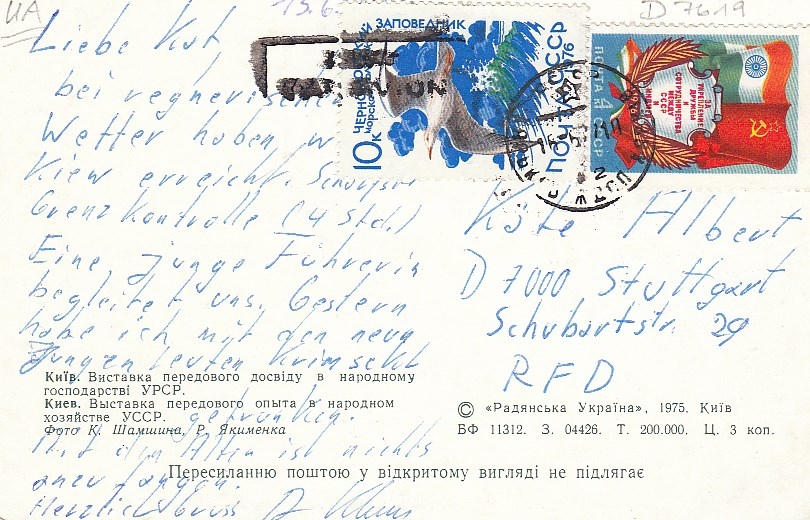 UA
13.6.
D 7619
Liebe Kät,
bei regnerischem
Wetter haben w
Kiew erreicht.
Grenz Kontrolle (4 Std.)
Eine junge Führerin
begleitet uns. Gestern
habe ich mit den neun
jungen Leuten Krimsekt
getrunken.
Mit den Alten ist nichts
anzufangen.
Herzlich Gruss D. Klaus
ЧЕРНОМОРСКИЙ
ЗАПОВЕДНИК
10к
ПОЧТА СССР
1976
ПОЧТА 4к СССР
1976
ЗА
УКРЕПЛЕНИЕ
ДРУЖБЫ
И
СОТРУДНИЧЕСТВА
МЕЖДУ
СССР
И
ИНДИЕЙ
Käte Albert
D 7000 Stuttgart
Schubartstr. 29
RFD
Київ. Виставка передового досвіду в народному
господарстві УРСР.
Киев. Выставка передового опыта в народном
хозяйстве УССР.
Фото К. Шамшина, Р. Якименка
© «Радянська Україна», 1975. Київ
БФ 11312. З. 04426. Т. 200.000. Ц. 3 коп.
Пересиланню поштою у відкритому вигляді не підлягає